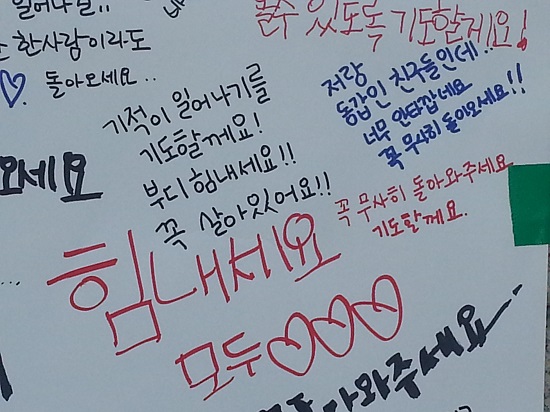 일어나길..
한사람이라도
돌아오세요..
있도록 기도할게요!
기적이 일어나기를
기도할께요!
부디 힘내세요!!
꼭 살아있어요!!
저랑
동갑인 친구들인데..
너무 안타깝네요
꼭 무사히 돌아오세요!!
오세요
꼭 무사히 돌아와주세요
기도할께요.
힘내세요
모두♡♡♡
아와주세요